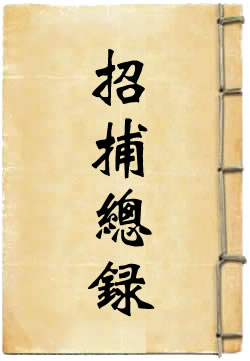 招捕總録